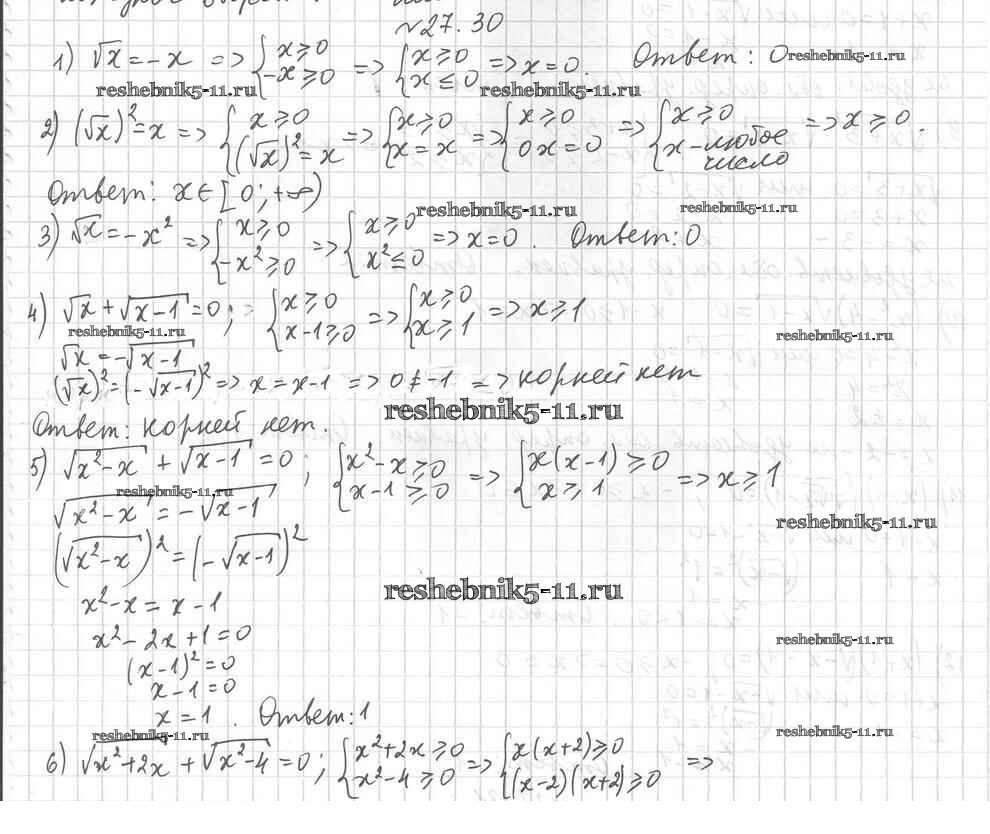 №27.30
1) √x = -x => { x ≥ 0 -x ≥ 0 => { x ≥ 0 x ≤ 0 => x = 0. Ответ: 0
reshebnik5-11.ru reshebnik5-11.ru reshebnik5-11.ru
2) (√x)² = x => { x ≥ 0 (√x)² = x => { x ≥ 0 x = x => { x ≥ 0 0x = 0 => { x ≥ 0 x - любое число => x ≥ 0.
Ответ: x ∈ [0; +∞)
reshebnik5-11.ru reshebnik5-11.ru
3) √x = -x² => { x ≥ 0 -x² ≥ 0 => { x ≥ 0 x² ≤ 0 => x = 0. Ответ: 0
4) √x + √(x-1) = 0; { x ≥ 0 x-1 ≥ 0 => { x ≥ 0 x ≥ 1 => x ≥ 1
reshebnik5-11.ru reshebnik5-11.ru
√x = -√(x-1)
(√x)² = (-√(x-1))² => x = x-1 => 0 ≠ -1 => корней нет
reshebnik5-11.ru
Ответ: корней нет.
5) √(x²-x) + √(x-1) = 0; { x²-x ≥ 0 x-1 ≥ 0 => { x(x-1) ≥ 0 x ≥ 1 => x ≥ 1
reshebnik5-11.ru
√(x²-x) = -√(x-1)
reshebnik5-11.ru
(√(x²-x))² = (-√(x-1))²
reshebnik5-11.ru
x²-x = x-1
x²-2x+1 = 0
reshebnik5-11.ru
(x-1)² = 0
x-1 = 0
x = 1. Ответ: 1
reshebnik5-11.ru reshebnik5-11.ru
6) √(x²+2x) + √(x²-4) = 0; { x²+2x ≥ 0 x²-4 ≥ 0 => { x(x+2) ≥ 0 (x-2)(x+2) ≥ 0 =>